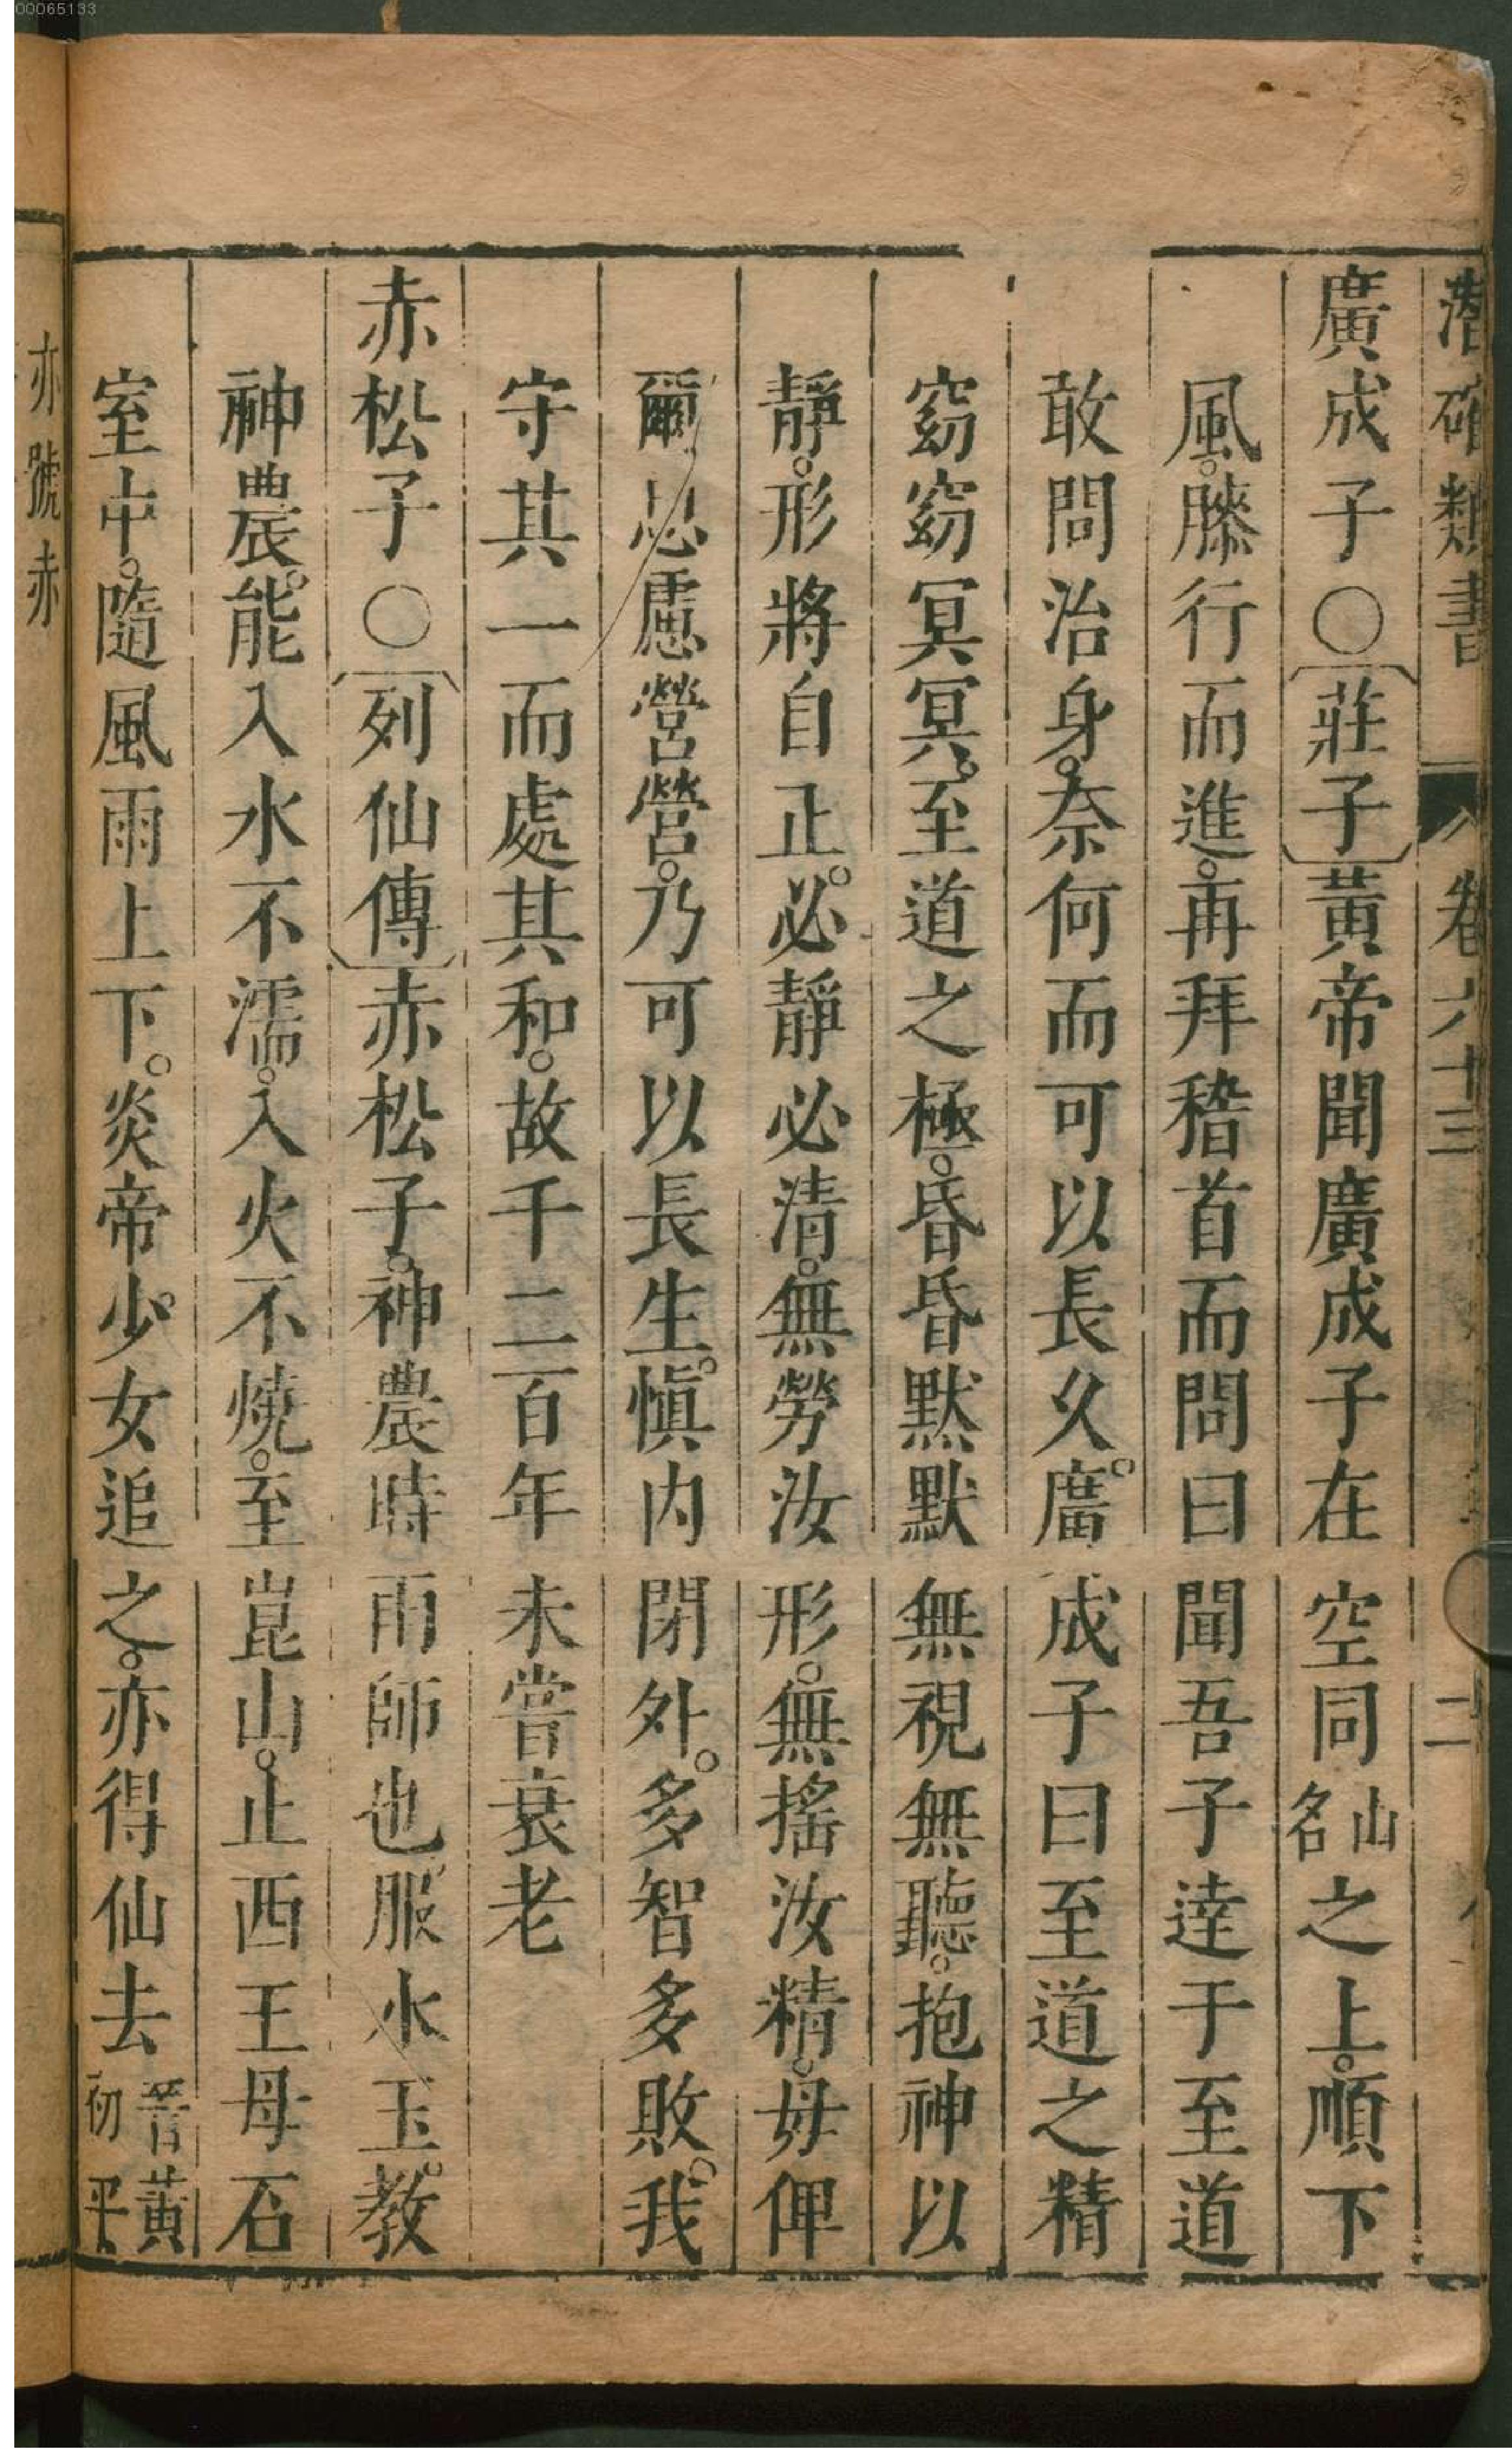 潛確類書 卷六十三 二
廣成子○〔莊子〕黃帝聞廣成子在空同山名之上。順下
風。膝行而進。再拜稽首而問曰聞吾子達于至道
敢問治身。奈何而可以長久。廣成子曰至道之精
窈窈冥冥。至道之極。昏昏默默無視無聽。抱神以
靜。形將自正。必靜必清。無勞汝形。無搖汝精。毋俾
爾思慮營營。乃可以長生。慎內閉外。多智多敗。我
守其一而處其和。故千二百年未嘗衰老
赤松子○〔列仙傳〕赤松子。神農時雨師也服水玉。教
神農。能入水不濡。入火不燒。至崑山。止西王母石
室中。隨風雨上下。炎帝少女追之。亦得仙去晉黃初平
亦號赤
00065133